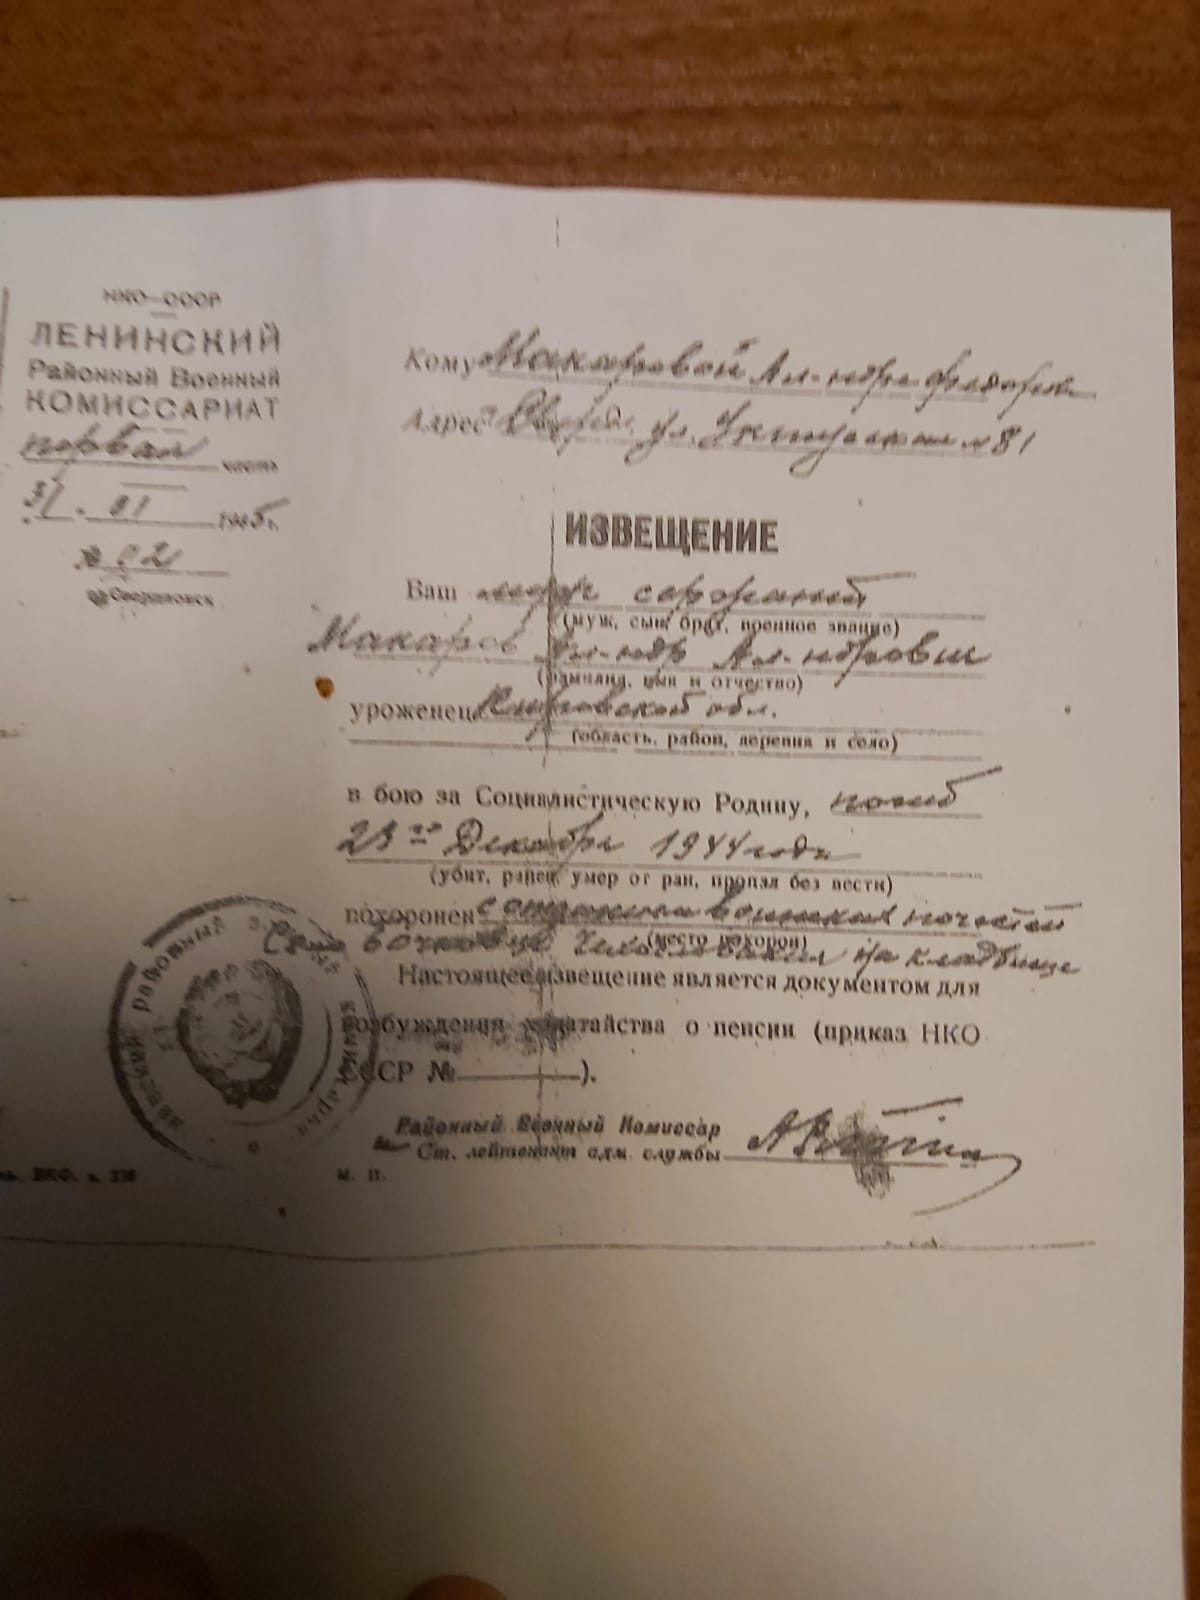 НКО—СССР
ЛЕНИНСКИЙ
Районный Военный
КОМИССАРИАТ
первая часть
31. III 1945 г.
№ 02
г. Свердловск
Кому Макаровой Ал-ндре Федоровне
Адрес Сверд. ул. № 81
ИЗВЕЩЕНИЕ
Ваш муж
(муж, сын, брат, военное звание)
Макаров Ал-ндр Ал-ндрович
(фамилия, имя и отчество)
уроженец Кировской обл.
(область, район, деревня и село)
в бою за Социалистическую Родину, погиб
23го Декабря 1944 года
(убит, ранен, умер от ран, пропал без вести)
похоронен с воинских почестей
(место похорон)
Село Чехословакия на кладбище
Настоящее извещение является документом для
возбуждения ходатайства о пенсии (приказ НКО
СССР № ).
Районный Военный Комиссар
Ст. лейтенант адм. службы
м. п.
районный